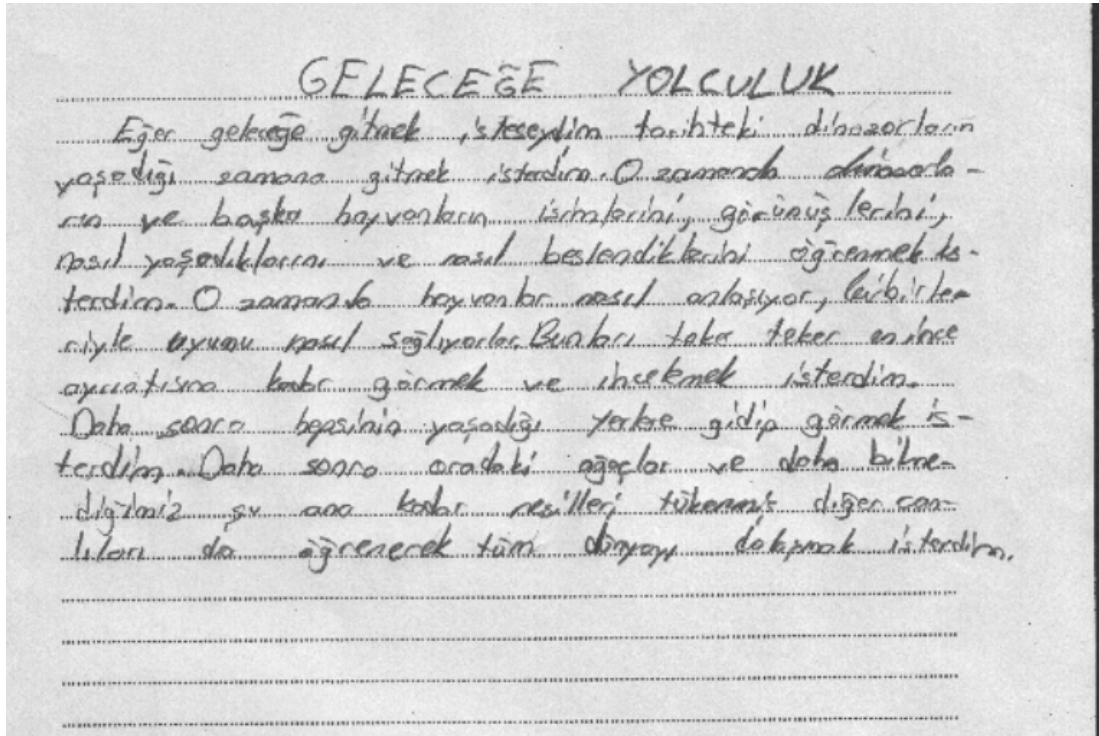 GELECEĞE YOLCULUK
Eğer geleceğe gitmek isteseydim tarihteki dinozorların
yaşadığı zamana gitmek isterdim. O zamanda dinozorla-
rın ve başka hayvanların isimlerini, görünüşlerini,
nasıl yaşadıklarını ve nasıl beslendiklerini öğrenmek is-
terdim. O zamanda hayvanlar nasıl anlaşıyor, birbirle-
riyle uyumu nasıl sağlıyorlar. Bunları teker teker en ince
ayrıntısına kadar görmek ve incelemek isterdim.
Daha sonra hepsinin yaşadığı yerlere gidip görmek is-
terdim. Daha sonra oradaki ağaçlar ve daha bilme-
diğimiz şu ana kadar nesilleri tükenmiş diğer can-
lıları da öğrenerek tüm dünyayı dolaşmak isterdim.